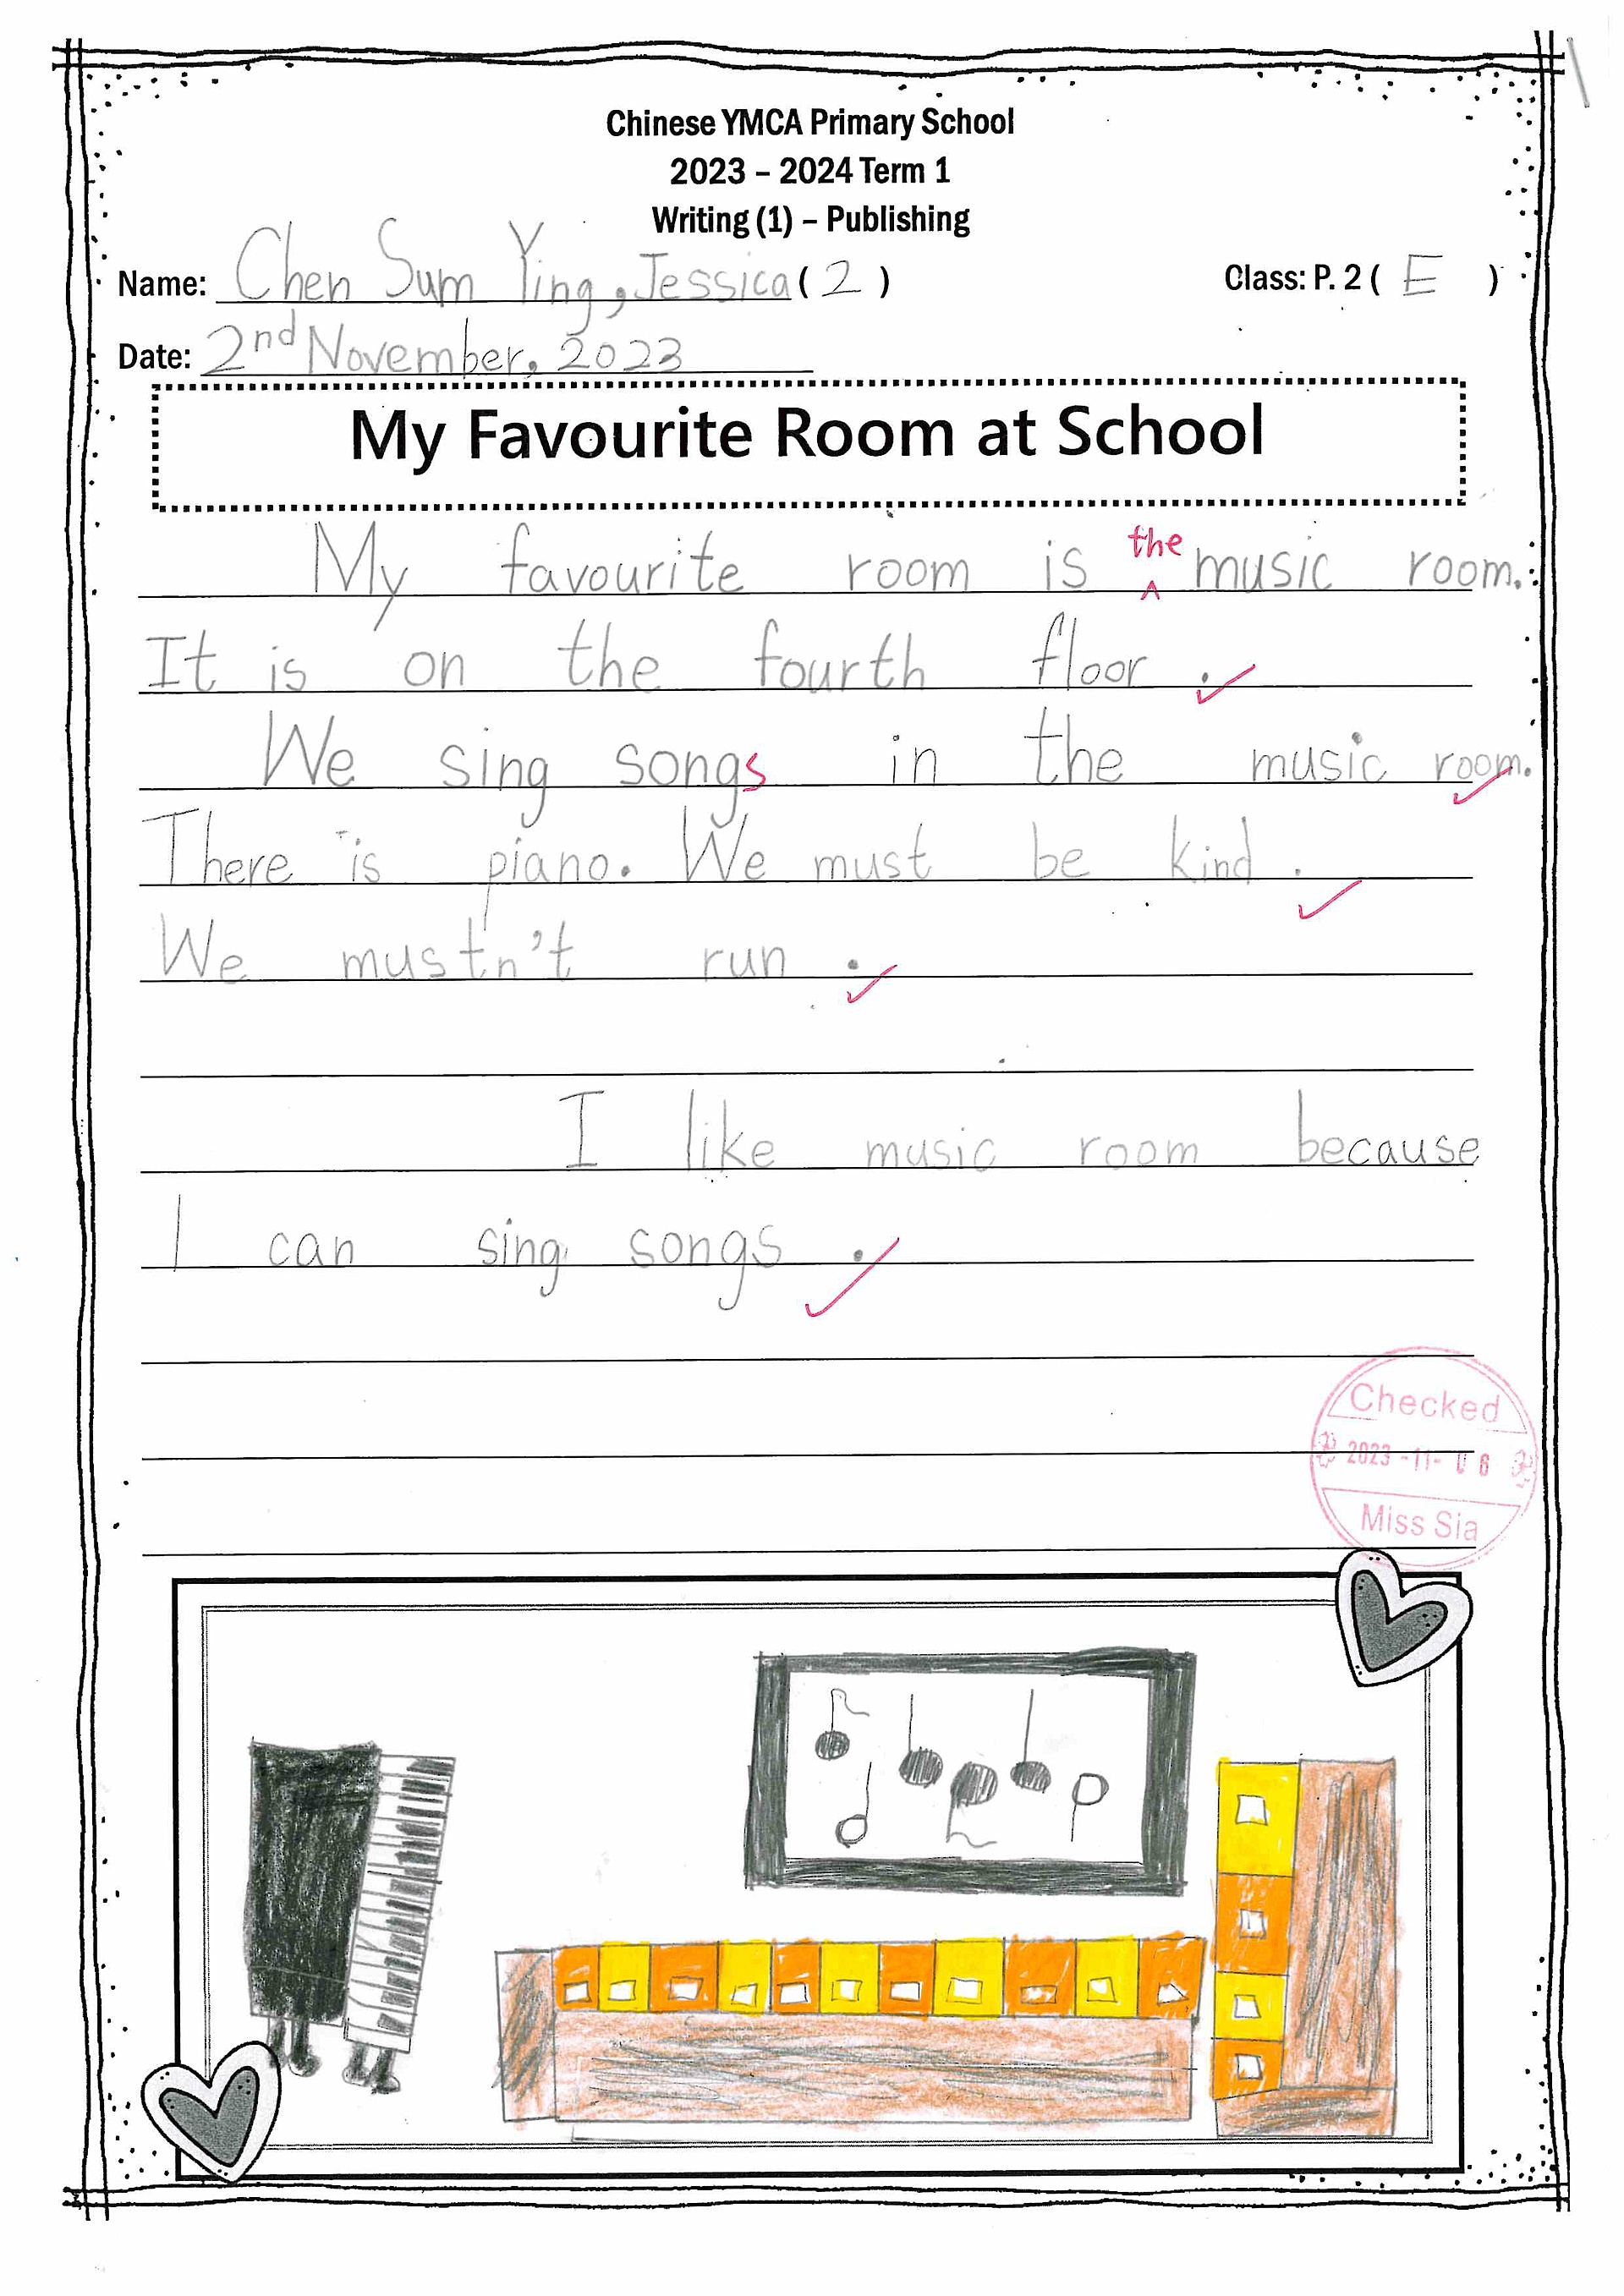 Chinese YMCA Primary School
2023 – 2024 Term 1
Writing (1) – Publishing
Name: Chen Sum Ying, Jessica ( 2 ) Class: P. 2 ( E )
Date: 2nd November, 2023
My Favourite Room at School
My favourite room is the music room.
It is on the fourth floor.
We sing songs in the music room.
There is piano. We must be kind.
We mustn't run.
I like music room because
I can sing songs.
Checked
2023 -11- 06
Miss Sia